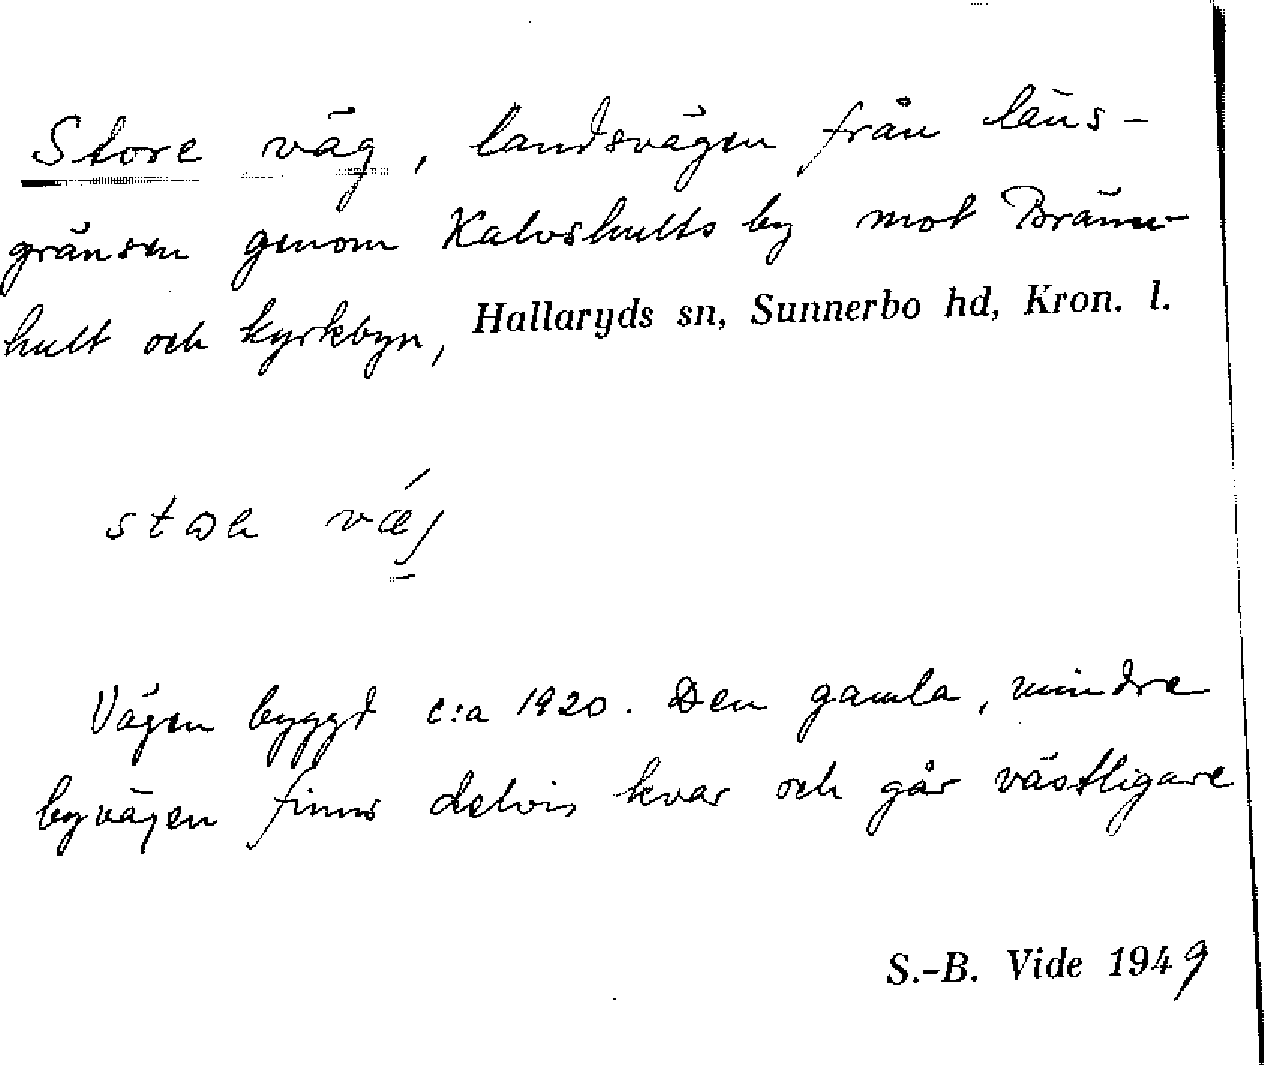 Store väg, landsvägen från läns-
gränsen genom Kalvshults by mot Bränn-
hult och kyrkbyn, Hallaryds sn, Sunnerbo hd, Kron. l.
Vägen byggd c:a 1920. Den gamla, mindre
byvägen finns delvis kvar och går västligare
S.-B. Vide 1949